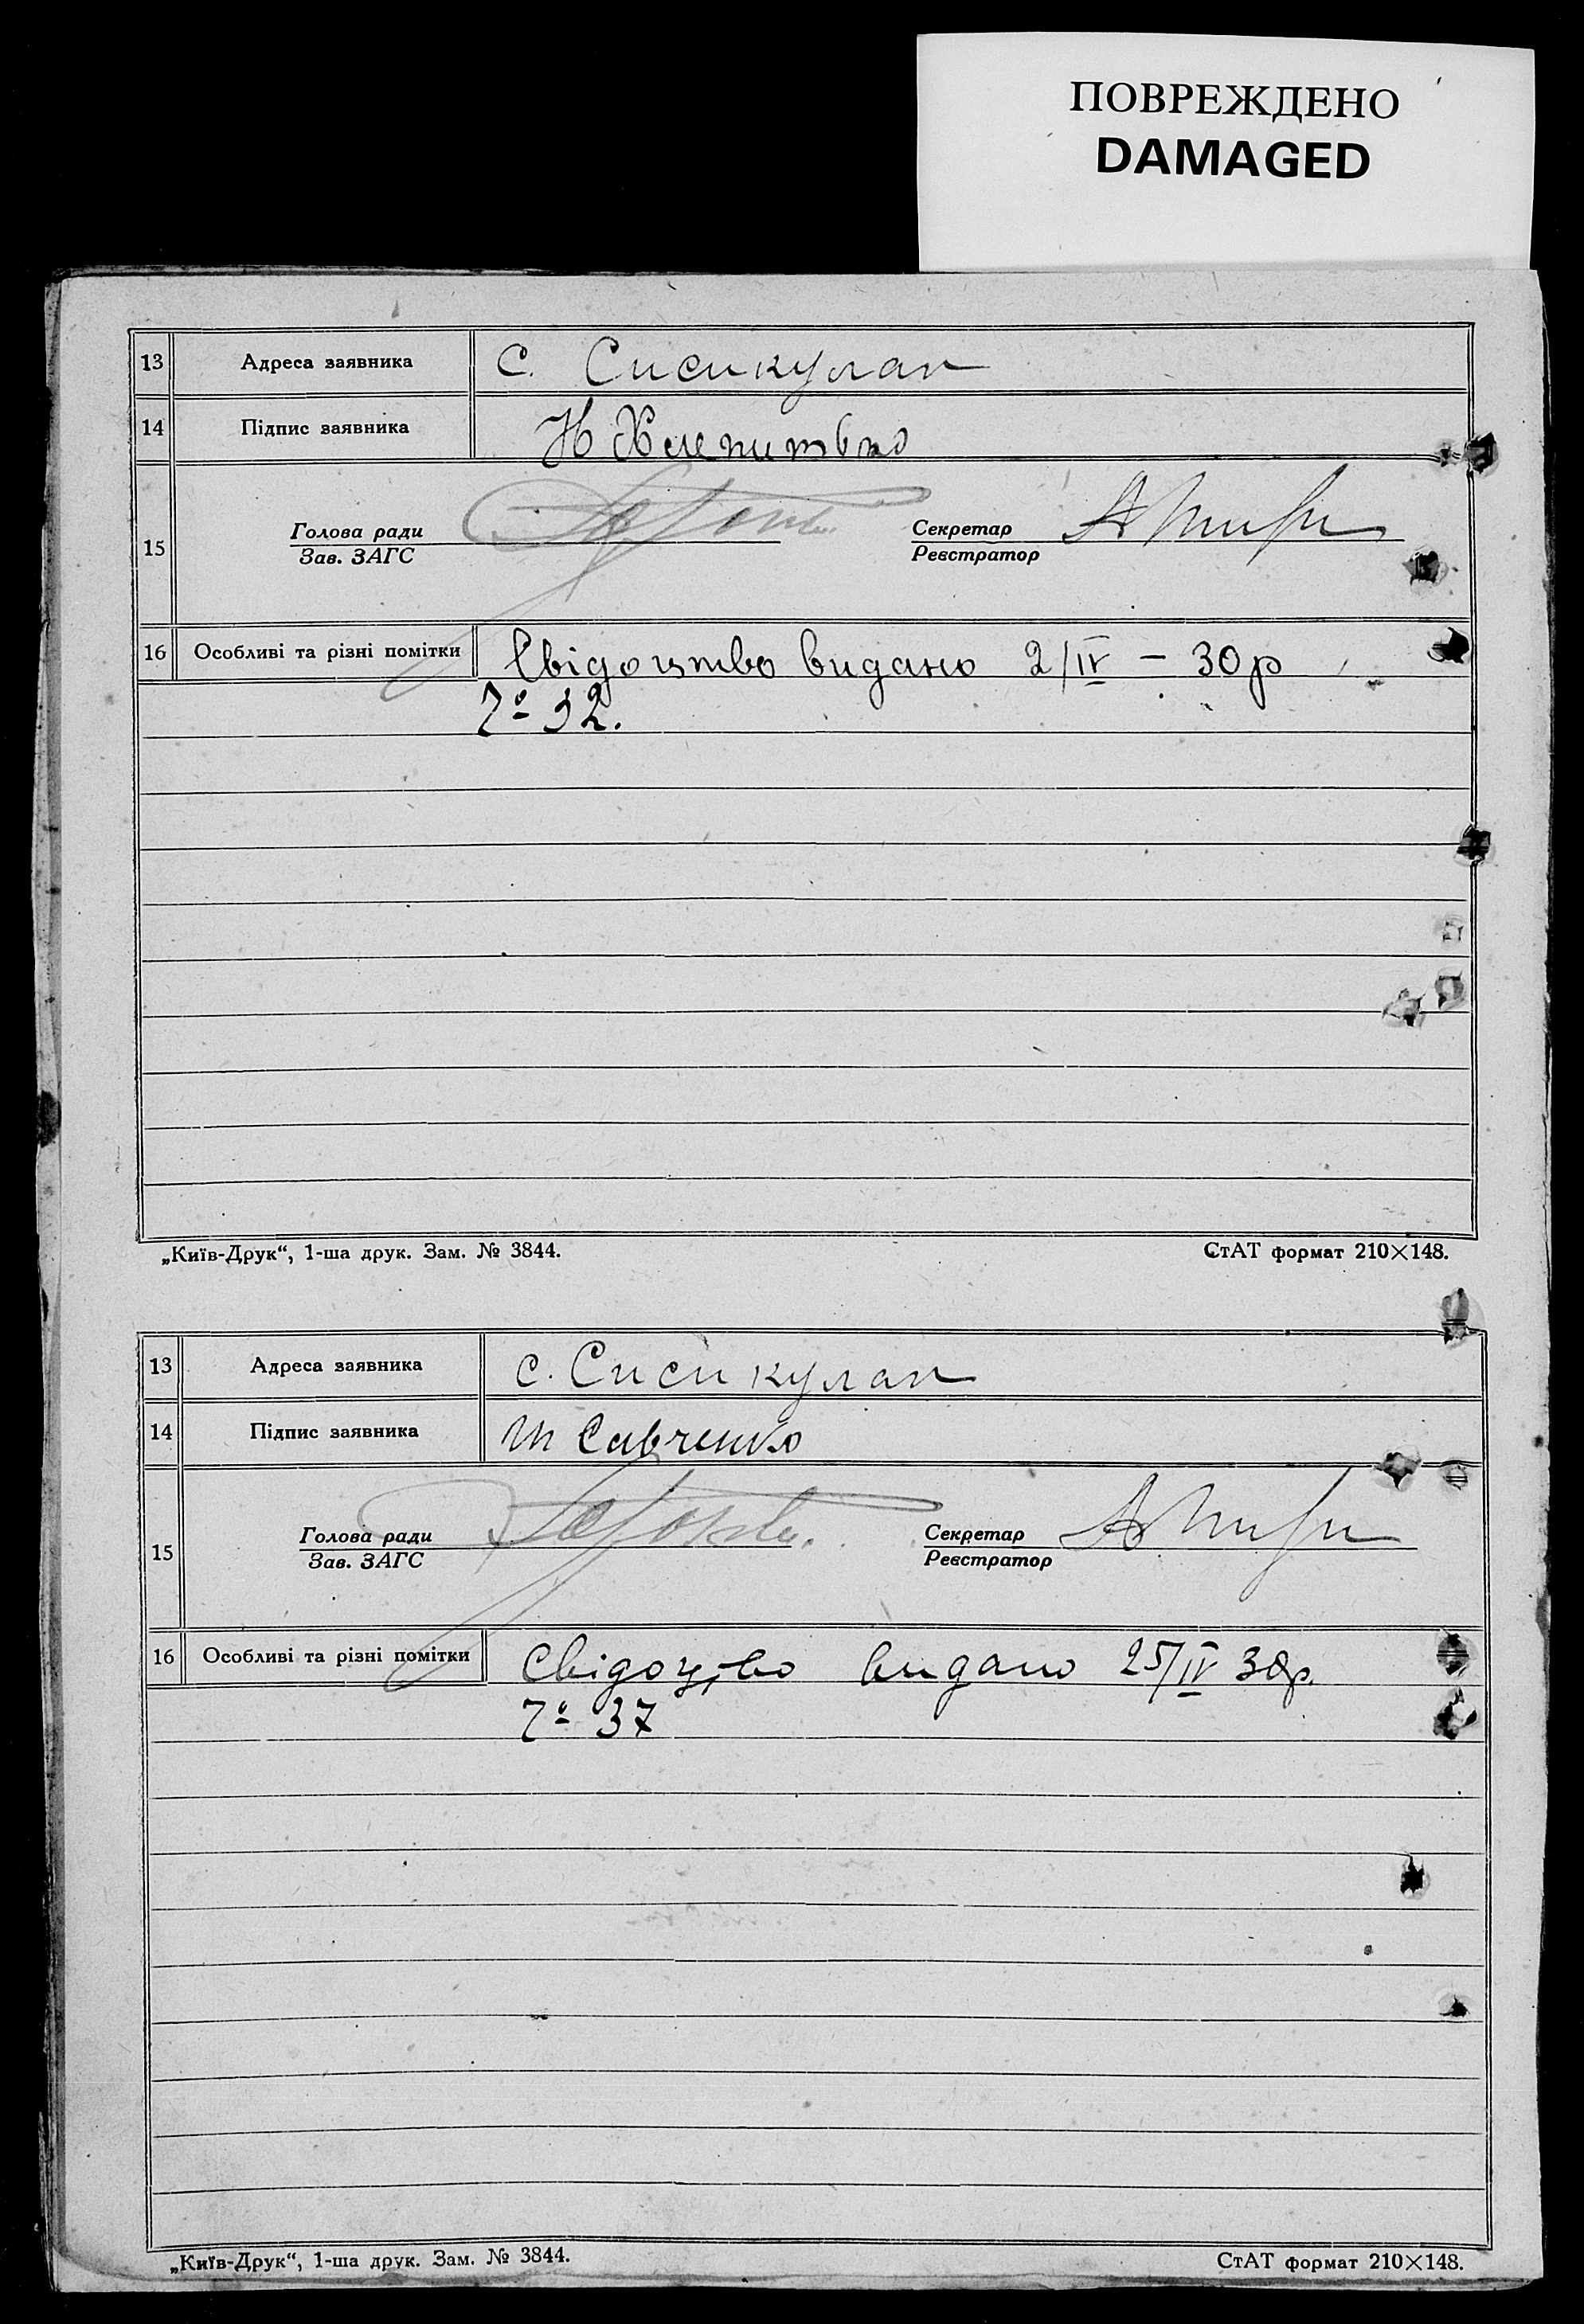 ПОВРЕЖДЕНО
DAMAGED
13 Адреса заявника с. Сисикулак
14 Підпис заявника Н
15 Голова ради Секретар
Зав. ЗАГС Реєстратор
16 Особливі та різні помітки Свідоцтво видано 2/IV – 30 р
№ 32.
„Київ-Друк“, 1-ша друк. Зам. № 3844. СтАТ формат 210×148.
13 Адреса заявника с. Сисикулак
14 Підпис заявника Савченко
15 Голова ради Секретар
Зав. ЗАГС Реєстратор
16 Особливі та різні помітки Свідоцтво видано 25/IV 30р.
№ 37
„Київ-Друк“, 1-ша друк. Зам. № 3844. СтАТ формат 210×148.